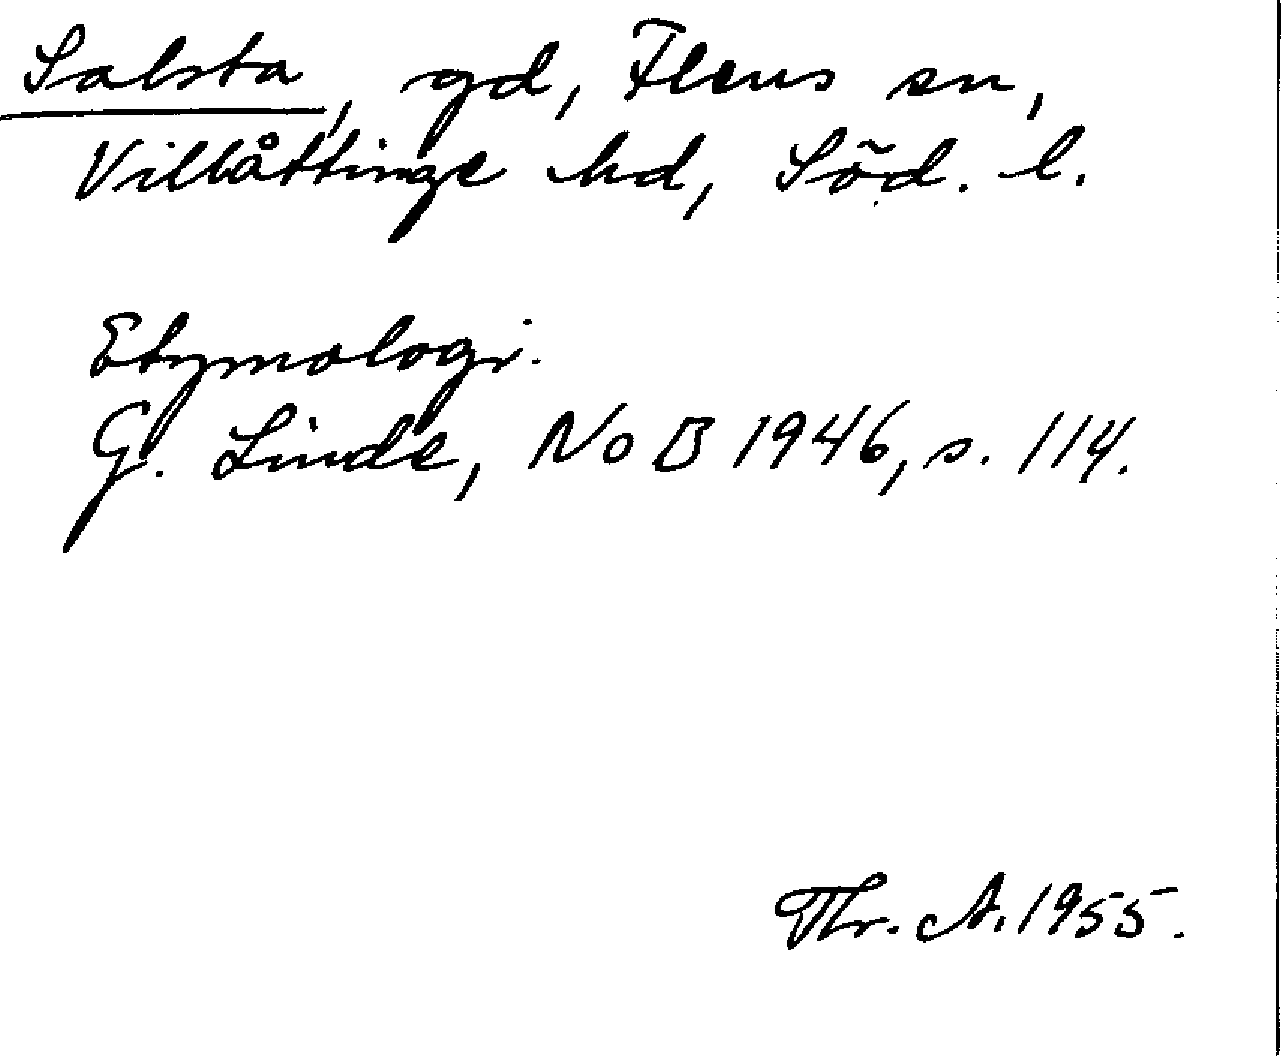 Salsta, gd, Flens sn,
Villåttinge hd, Söd. l.
Etymologi.
G. Linde, NoB 1946, s. 114.
Thr. A. 1955.